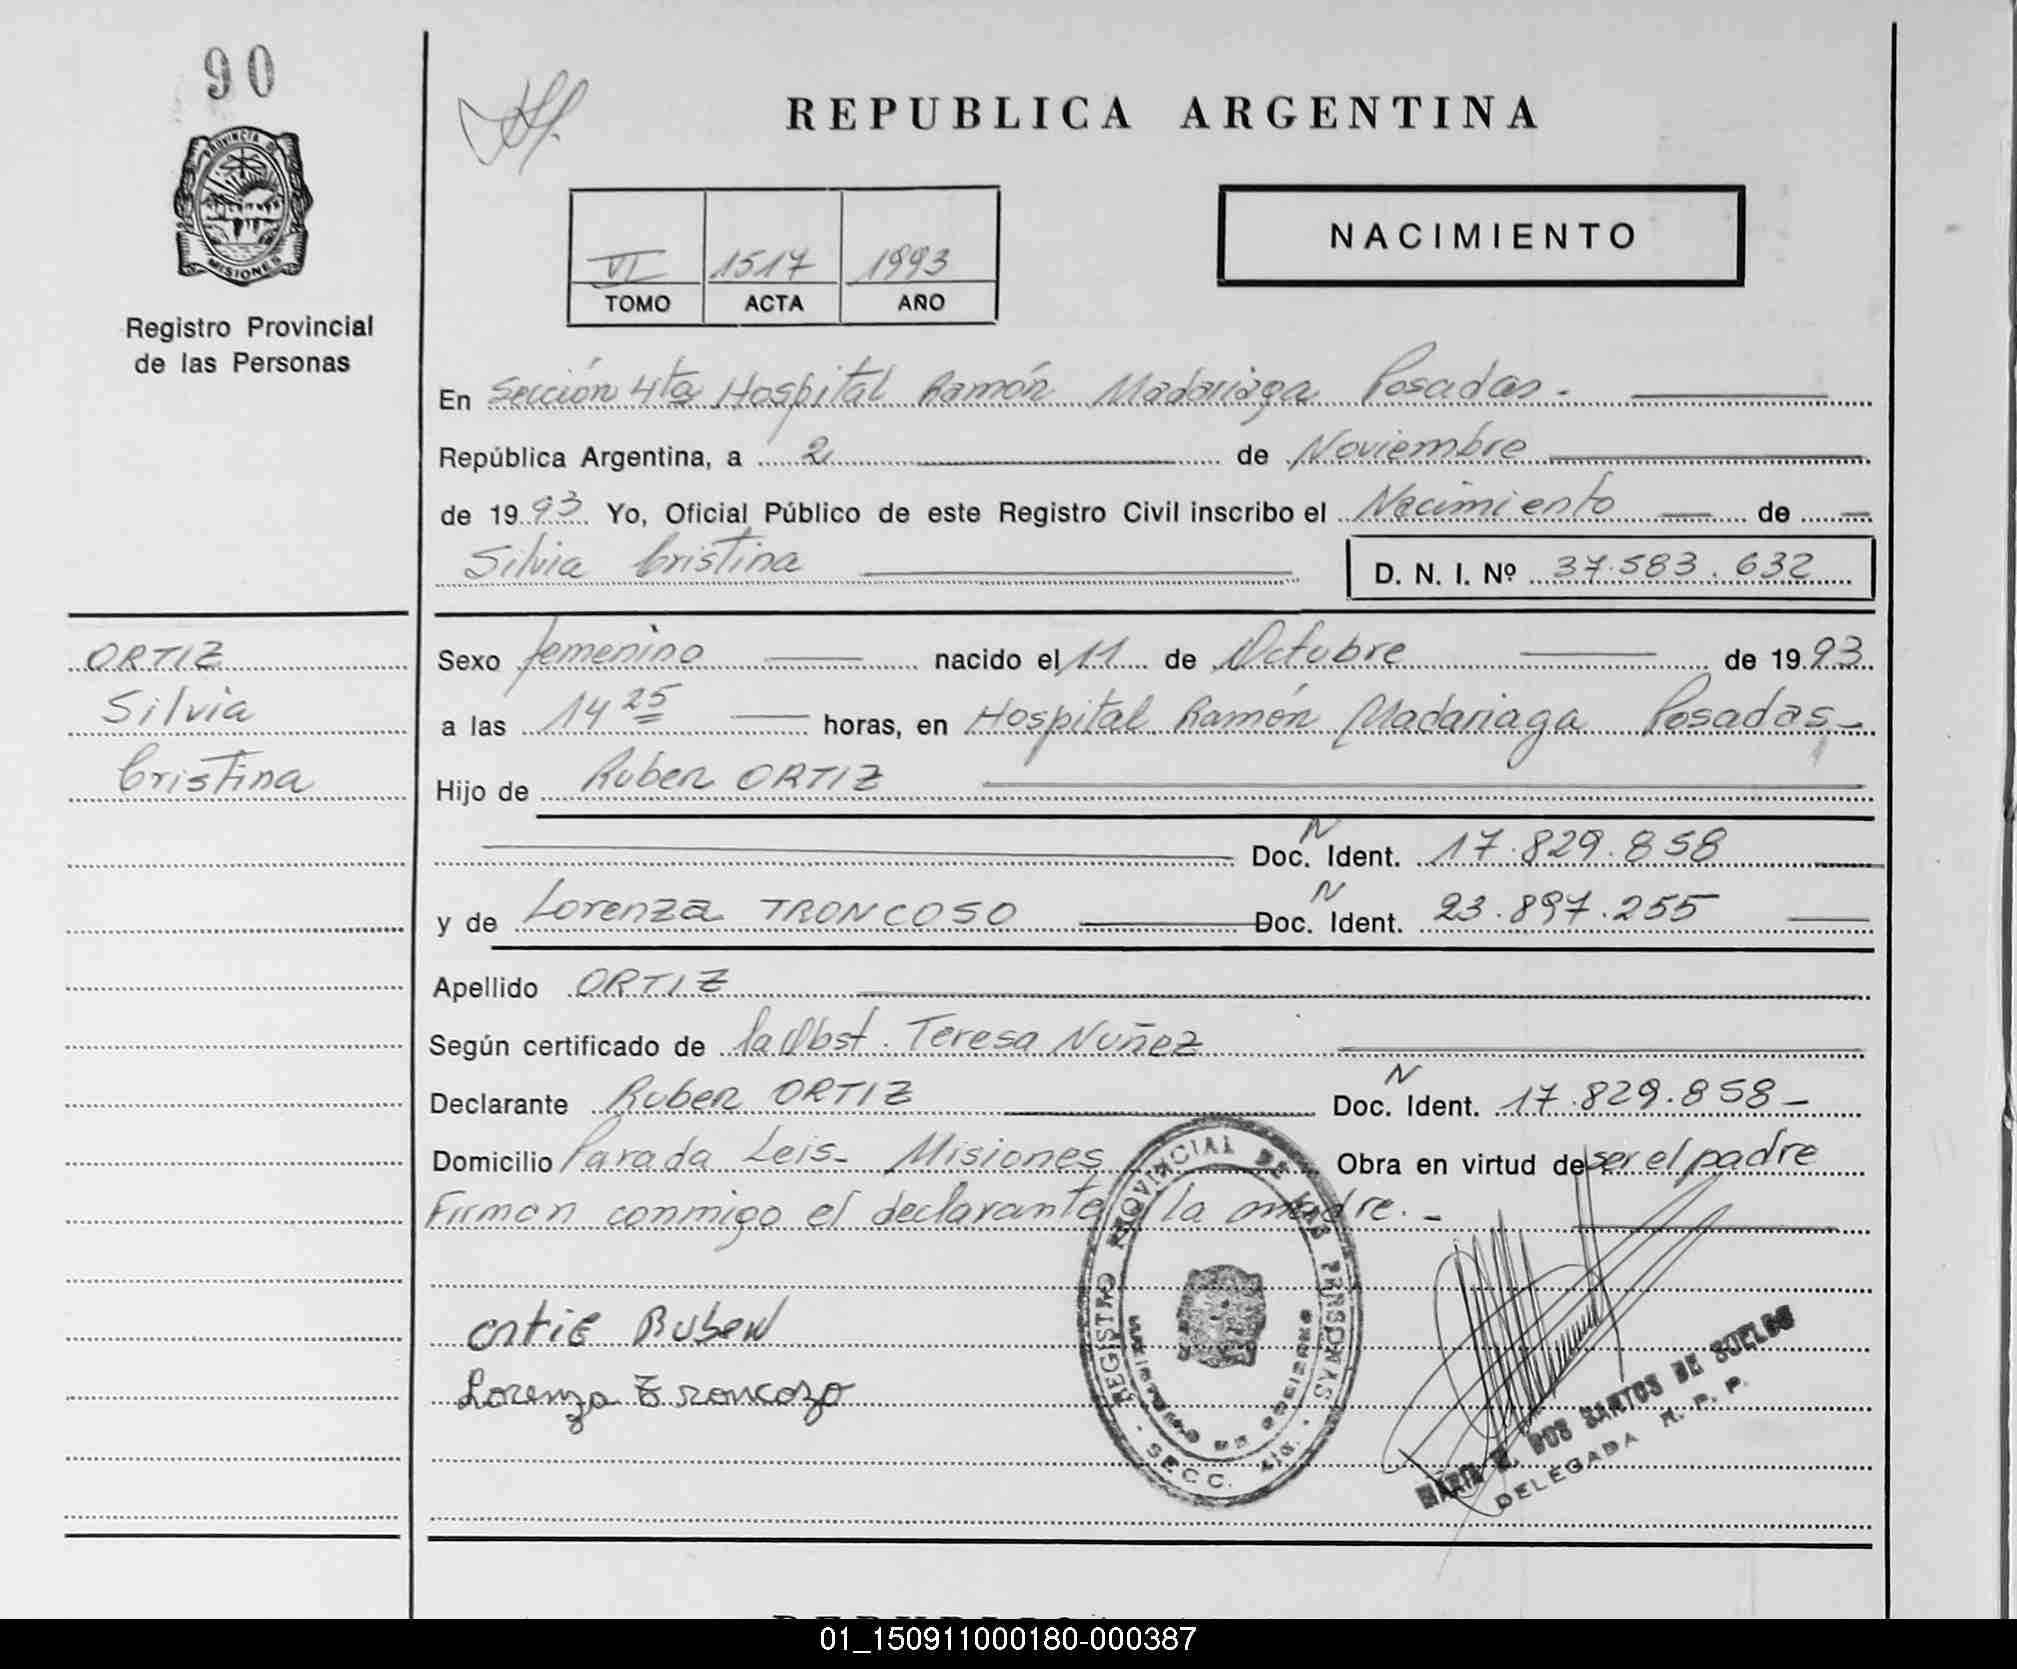 90
PROVINCIA DE
MISIONES
Registro Provincial
de las Personas
REPUBLICA ARGENTINA
VI 1517 1993
TOMO ACTA AÑO
NACIMIENTO
En Sección 4ta Hospital Ramón Madariaga Posadas.-
República Argentina, a 2 de Noviembre
de 1993 Yo, Oficial Público de este Registro Civil inscribo el Nacimiento de
Silvia Cristina D. N. I. Nº 37.583.632
ORTIZ
Silvia
Cristina
Sexo femenino nacido el 11 de Octubre de 1993
a las 14 25 horas, en Hospital Ramón Madariaga Posadas-
Hijo de Ruben ORTIZ
N
Doc. Ident. 17.829.858
N
y de Lorenza TRONCOSO Doc. Ident. 23.897.255
Apellido ORTIZ
Según certificado de la Obst. Teresa Nuñez
N
Declarante Ruben ORTIZ Doc. Ident. 17.829.858-
Domicilio Parada Leis- Misiones Obra en virtud de ser el padre
Firman conmigo el declarante y la madre.-
ortiz Ruben
Lorenza Troncozo
REGISTRO PROVINCIAL DE LAS PERSONAS
MINISTERIO DE GOBIERNO
- SECC. 4ta. -
DOS SANTOS DE SUELDO
DELEGADA R. P. P.
01_150911000180-000387